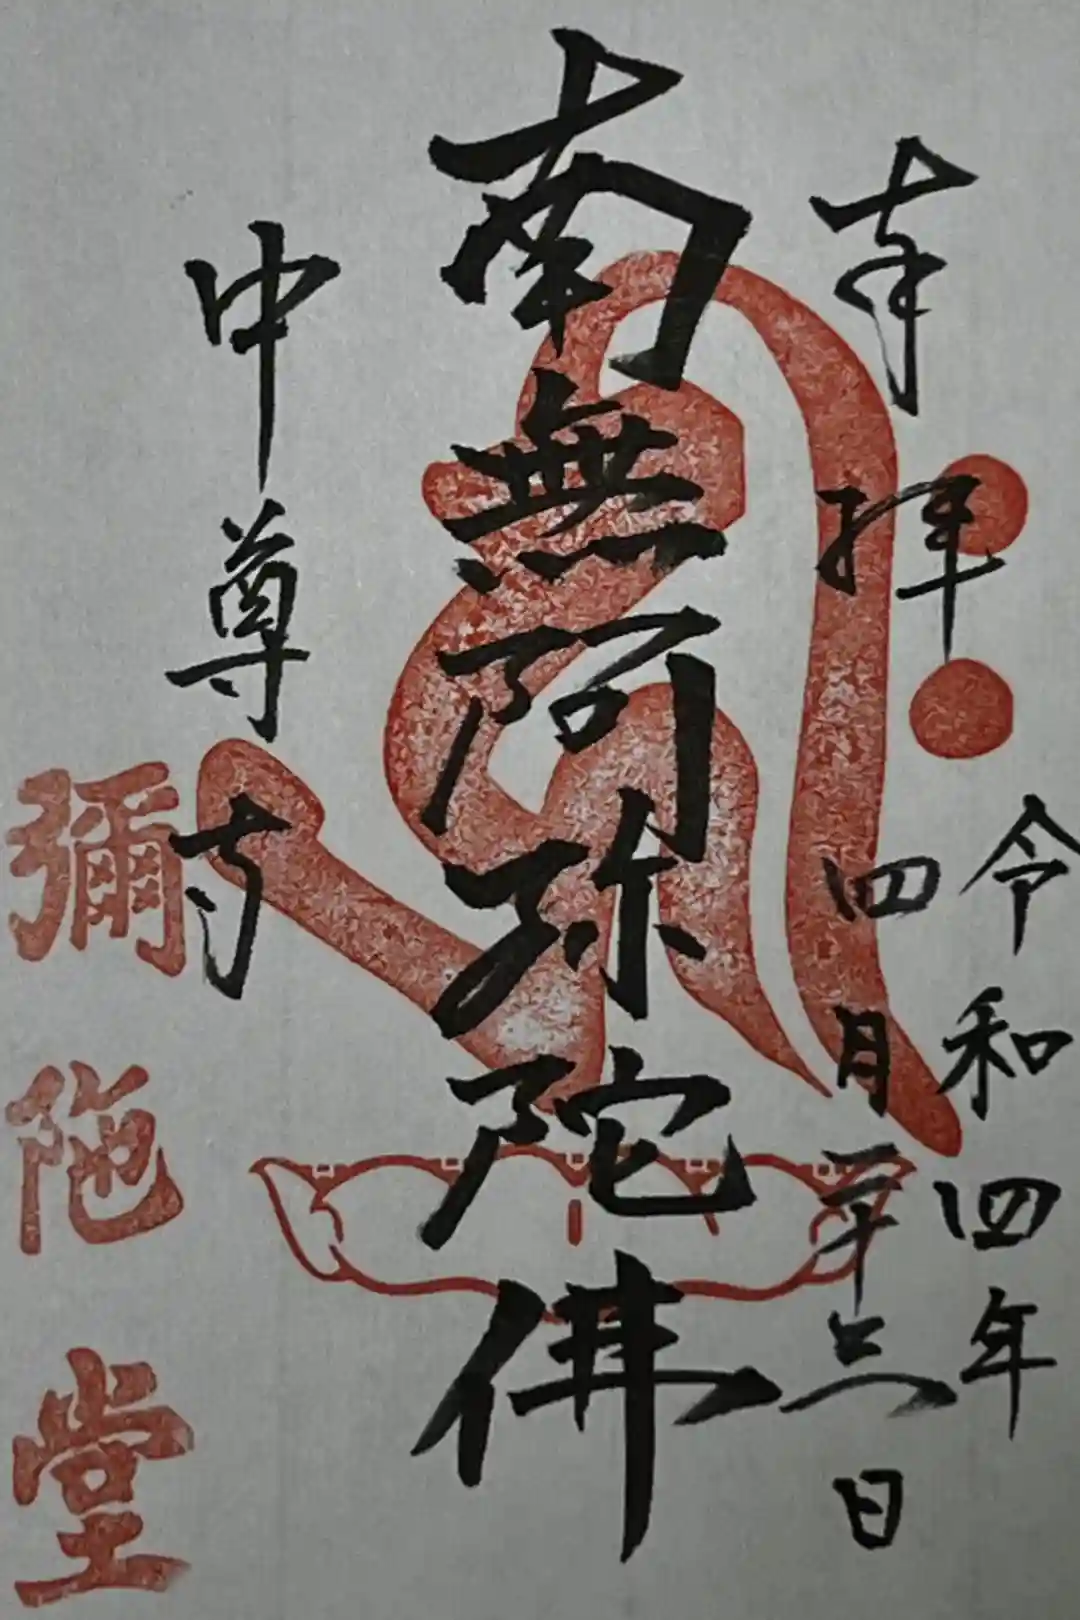 奉拝
令和四年
四月二十六日
南無阿弥陀佛
中尊寺
彌陁堂